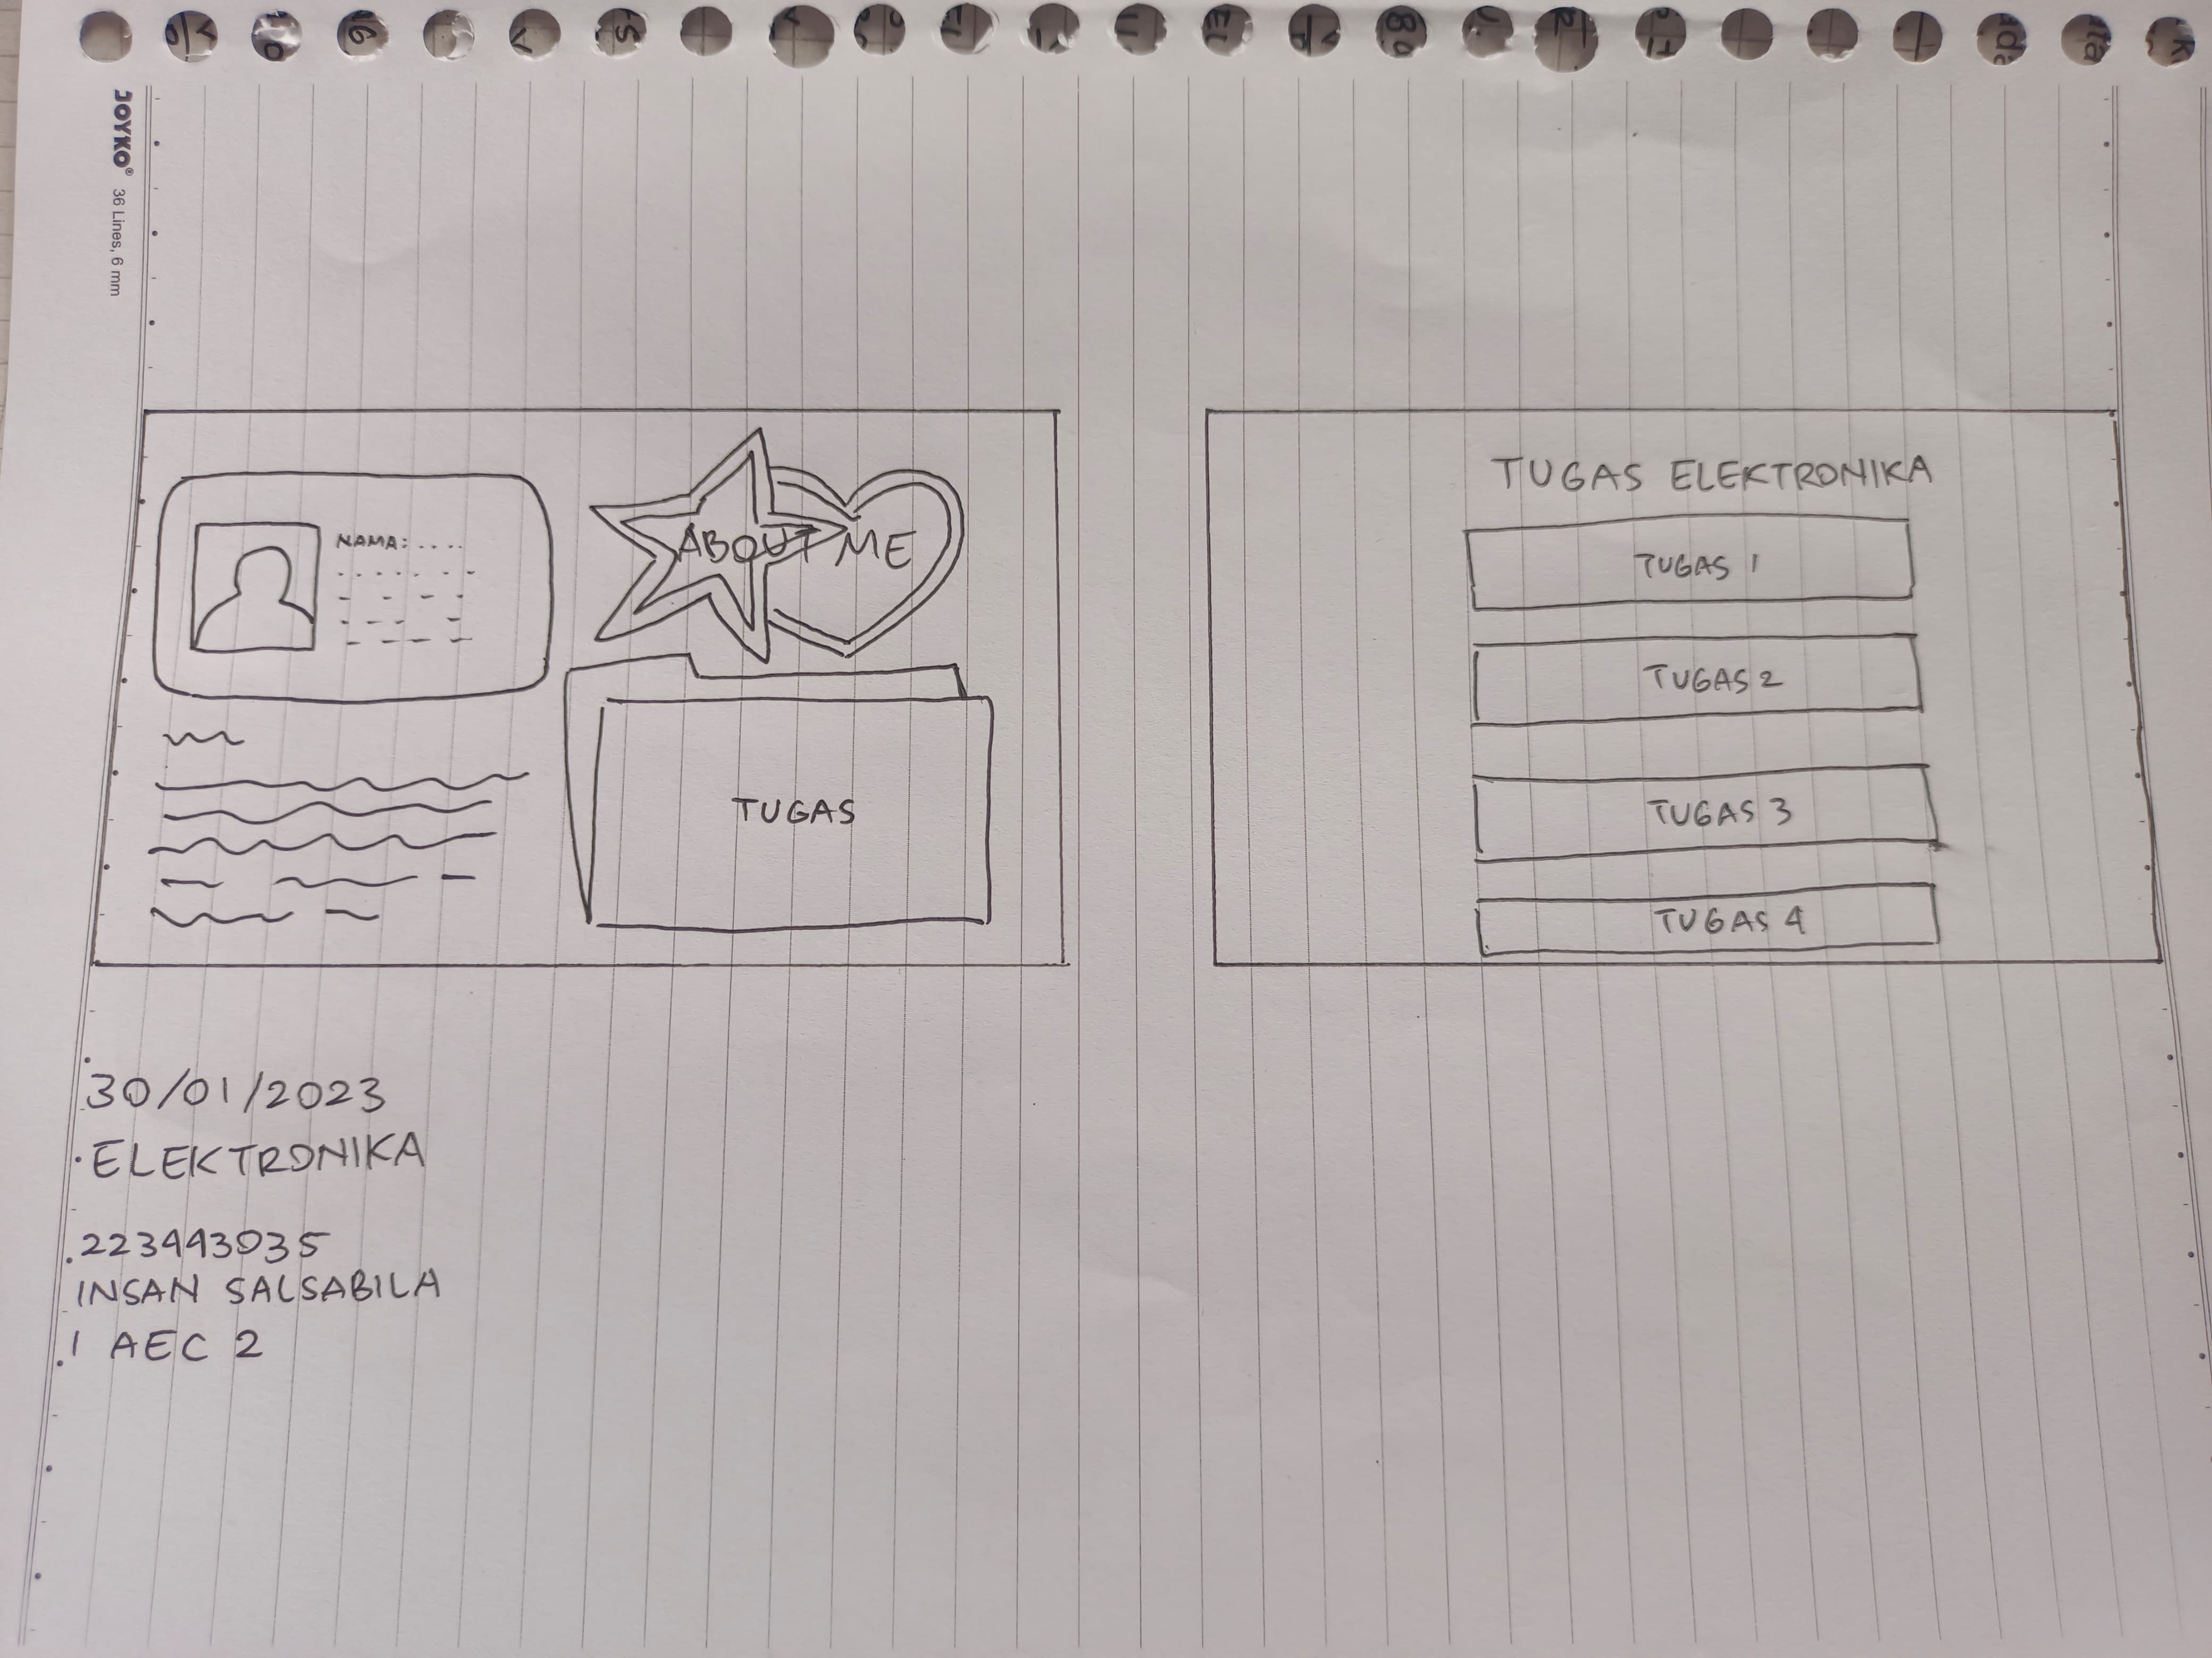 JOYKO® 36 Lines, 6 mm
NAMA: ....
ABOUT ME
TUGAS
TUGAS ELEKTRONIKA
TUGAS 1
TUGAS 2
TUGAS 3
TUGAS 4
30/01/2023
ELEKTRONIKA
223443035
INSAN SALSABILA
1 AEC 2